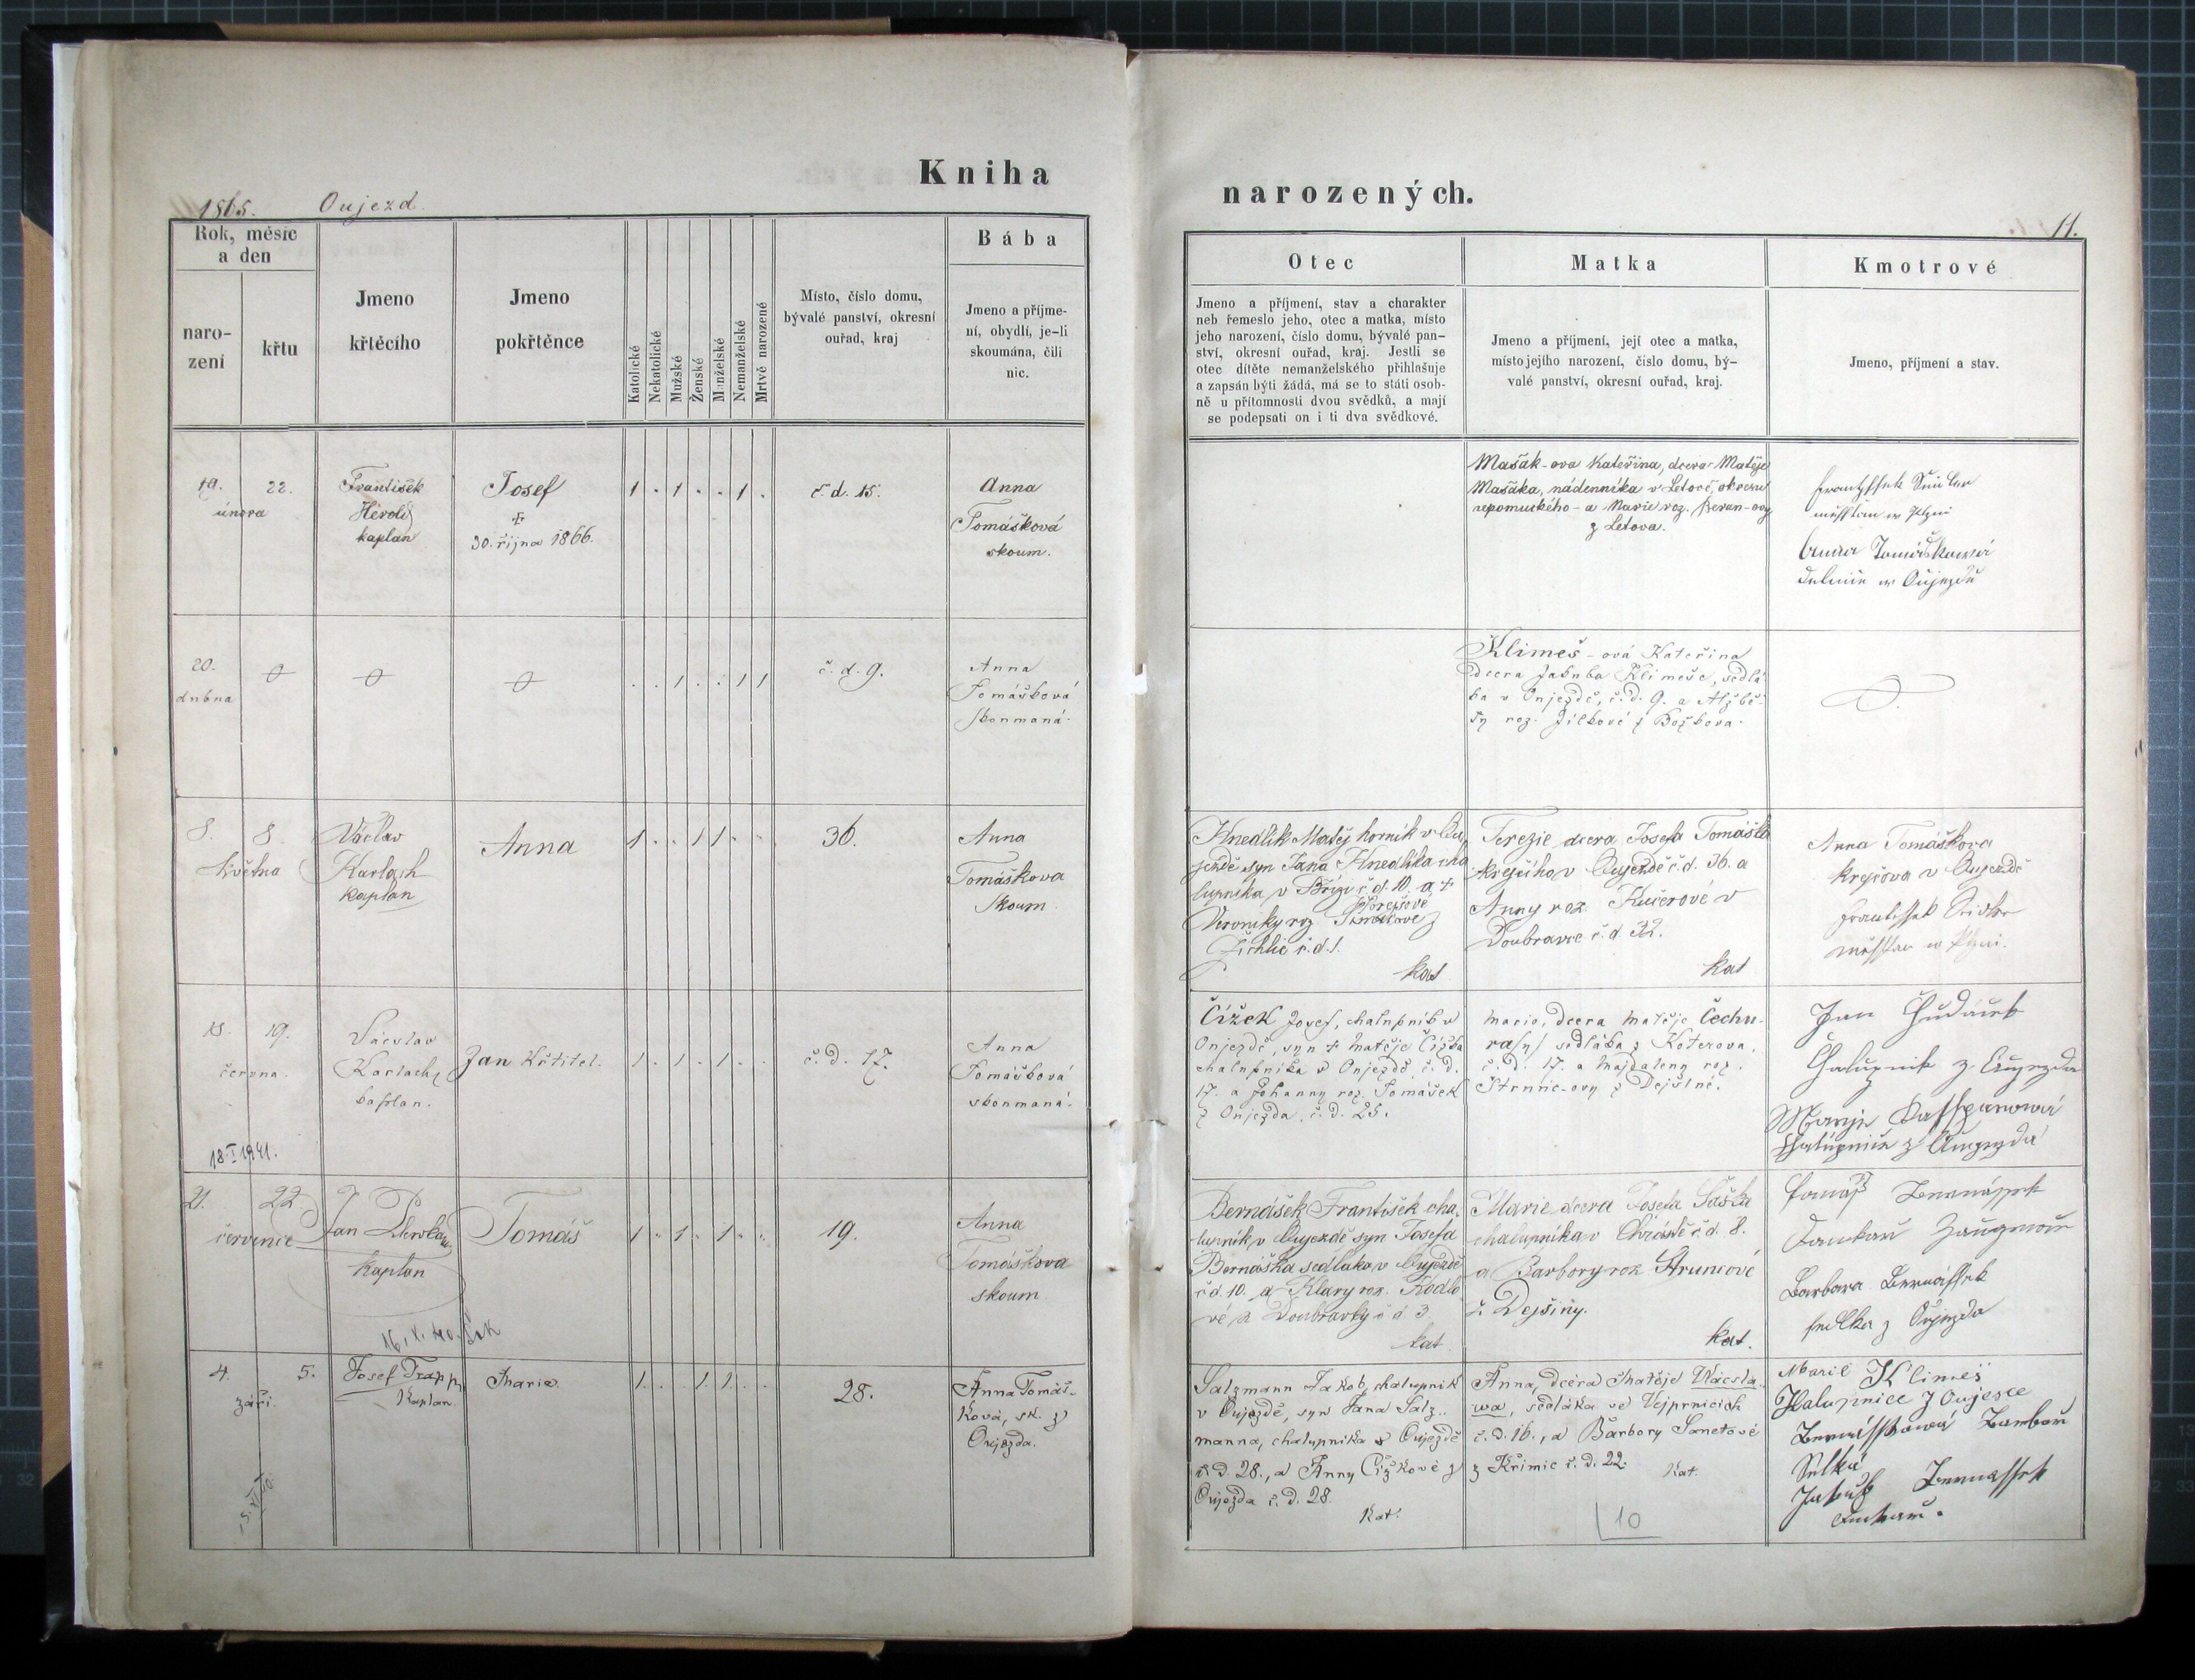 Kniha
1865. Oujezd.
Rok, měsíc
a den
naro-
zení
křtu
Jmeno
křtěcího
Jmeno
pokřtěnce
Katolické
Nekatolické
Mužské
Ženské
Manželské
Nemanželské
Mrtvě narozené
Místo, číslo domu,
bývalé panství, okresní
ouřad, kraj
Bába
Jmeno a příjme-
ní, obydlí, je-li
skoumána, čili
nic.
19. 22.
února
František
Herold
kaplan
Josef
+
30. října 1866.
1 . 1 . . 1 .
č. d. 15.
Anna
Tomášková
skoum.
20.
dubna
. . 1 . . 1 1
č. d. 9.
Anna
Tomášková
skoumaná.
8. 8.
května
Václav
Karlach
kaplan
Anna
1 . . 1 1 . .
36.
Anna
Tomáškova
skoum
18. 19.
června.
Václav
Karlach,
kaplan.
18.I 1941.
Jan Křtitel.
1 . 1 . 1 . .
č. d. 17.
Anna
Tomášková
skoumaná.
21. 22
července
Jan
kaplan
Tomáš
1 . 1 . 1 . .
19.
Anna
Tomáškova
skoum
4. 5.
září.
Josef Trapp,
Kaplan.
Marie.
1 . . 1 1 . .
28.
Anna Tomáš-
ková, sk. z
Oujezda.
narozených.
11.
Otec
Jmeno a příjmení, stav a charakter
neb řemeslo jeho, otec a matka, místo
jeho narození, číslo domu, bývalé pan-
ství, okresní ouřad, kraj. Jestli se
otec dítěte nemanželského přihlašuje
a zapsán býti žádá, má se to státi osob-
ně u přítomnosti dvou svědků, a mají
se podepsati on i ti dva svědkové.
Matka
Jmeno a příjmení, její otec a matka,
místo jejího narození, číslo domu, bý-
valé panství, okresní ouřad, kraj.
Kmotrové
Jmeno, příjmení a stav.
Mašák-ova Kateřina, dcera Matěje
Mašáka, nádenníka v Letově, okresu
nepomuckého - a Marie roz. Beran-ovy
z Letova.
Anna Tomásskowá
w Oujezdě
Klimeš-ová Kateřina
dcera Jakuba Klimeše, sedlá-
ka v Oujezdě, č. d. 9. a Alžbě-
ty roz. Jílkové z Božkova.
Hnedlík Matěj horník v Ou-
jezdě syn Jana Hnedlíka cha
lupníka v Břízi č. d. 10. a +
Veroniky roz
z
Žichlic č. d. 1.
kat
Terezie dcera Josefa Tomáška
krejčího v Oujezdě č. d. 36. a
Anny roz. Kučerové v
Doubravce č. d. 32.
kat
Anna Tomáškova
krejčova v Oujezdě
Čížek Josef, chalupník v
Oujezdě, syn + Matěje Čížka
chalupníka v Oujezdě, č. d.
17. a Johanny roz. Tomášek
z Oujezda, č. d. 25.
Marie, dcera Matěje Čechu-
ra/y/ sedláka z Koterova,
č. d. 17. a Majdaleny roz.
Strnic-ovy z Dejšiné.
Jan
Chalupnik z Augezda
Marye Kassparowá
z Augezda
Bernášek František cha-
lupník v Oujezdě syn Josefa
Bernáška sedláka v Oujezdě
č. d. 10. a Klary roz. Kodlo
vé z Doubravky č. d. 3.
kat
Marie dcera Josefa Šaška
chalupníka v Chrástě č. d. 8.
a Barbory roz Struncové
z Dejšiny.
kat.
Tomáss Bernássek
Barbara Bernássek
sedlka z Oujezda
Salzmann Jakob, chalupník
v Oujezdě, syn Jana Salz-
manna, chalupníka v Oujezdě
č. d. 28., a Anny Čížkové z
Oujezda č. d. 28.
Kat.
Anna, dcera Matěje Vácsla-
wa, sedláka ve Vejprnicích
č. d. 16., a Barbory Sanetové
z Křimic č. d. 22.
Kat.
10
Marie Klimeš
Halupnice z Oujesce
Bernásskowá Barbora
Selka
Jakub Bernassek